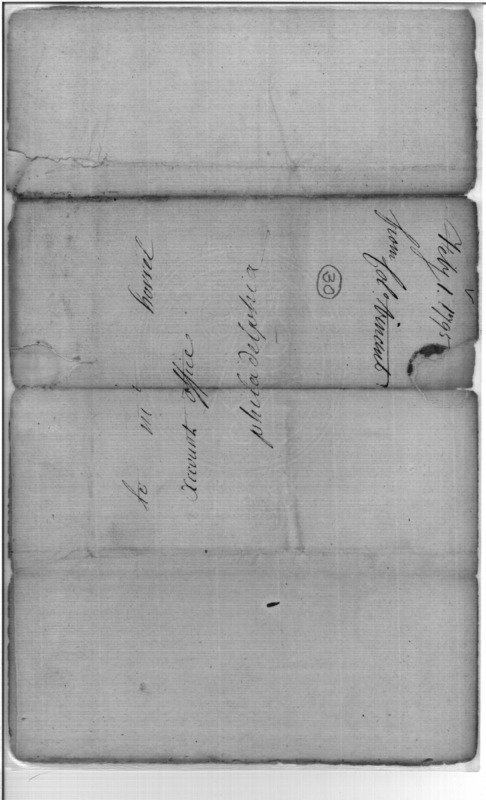 to mr howel
accounts office
philadelphia
30
Feby. 1. 1795
from Col. Vincent